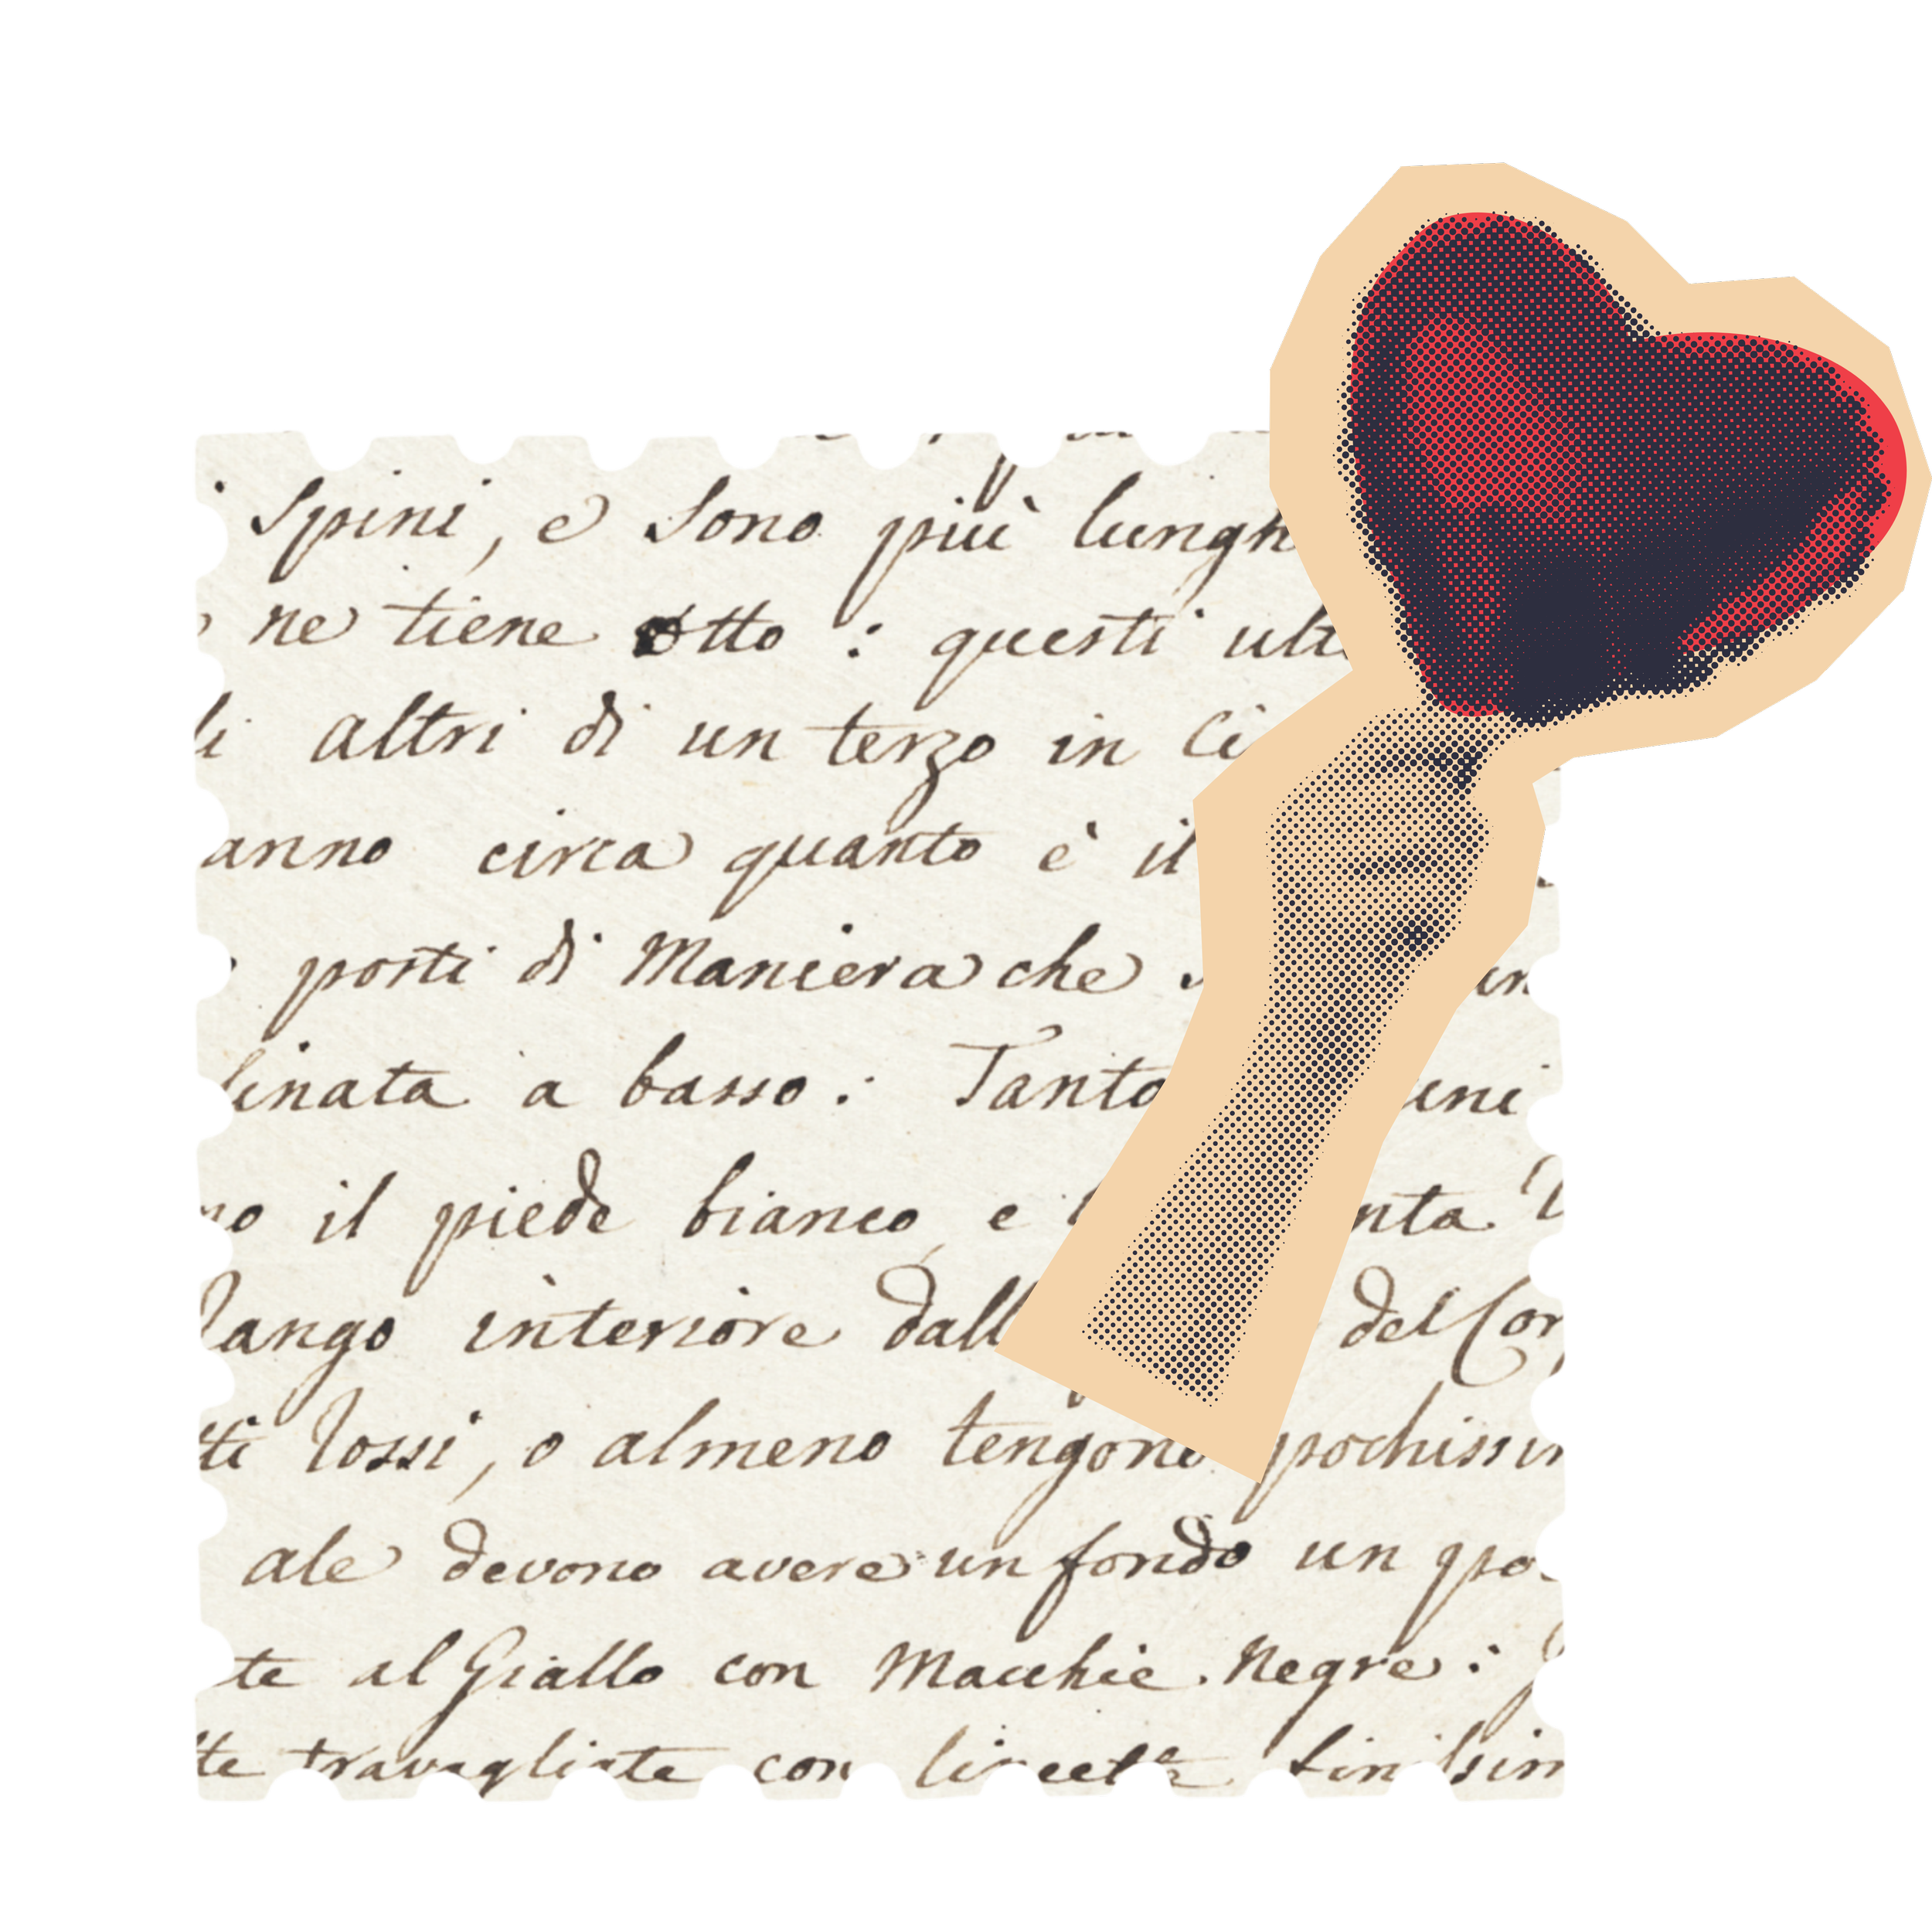 Spini, e sono più lungh
ne tiene otto : questi ult
li altri di un terzo in Ci
anno circa quanto è il
posti di Maniera che
linata a basso : Tanto uni
no il piede bianco, e nta
lango interiore dall del Cor
tti rossi, o almeno tengono pochissi
ale devono avere un fondo un po
te al Giallo con Macchie Negre :
te travagliate con